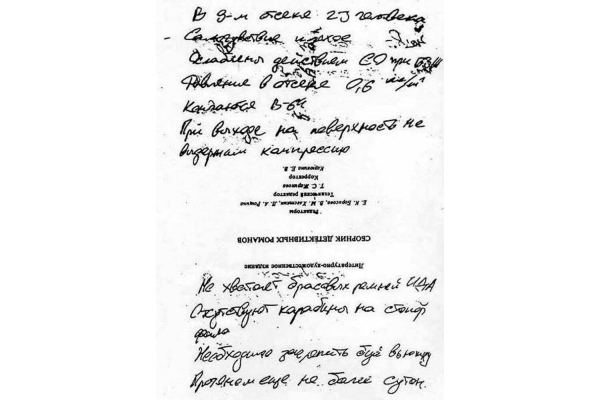 В 9-м отсеке 23 человека
Самочувствие плохое
Ослаблены действием СО при
Давление в отсеке 0,6 кг/см²
Кончаются В-64
При выходе на поверхность не
выдержим компрессию
Литературно-художественное издание
СБОРНИК ДЕТЕКТИВНЫХ РОМАНОВ
Редакторы
Е. Н. Борисова, В. М. Л. А. Рощина
Технический редактор
Т. С. Жарикова
Корректор
Е. В.
Не хватает брасовых ремней ИДА
Отсутствуют карабины на стопор
фала
Необходимо закрепить буй
Протянем еще не более суток.